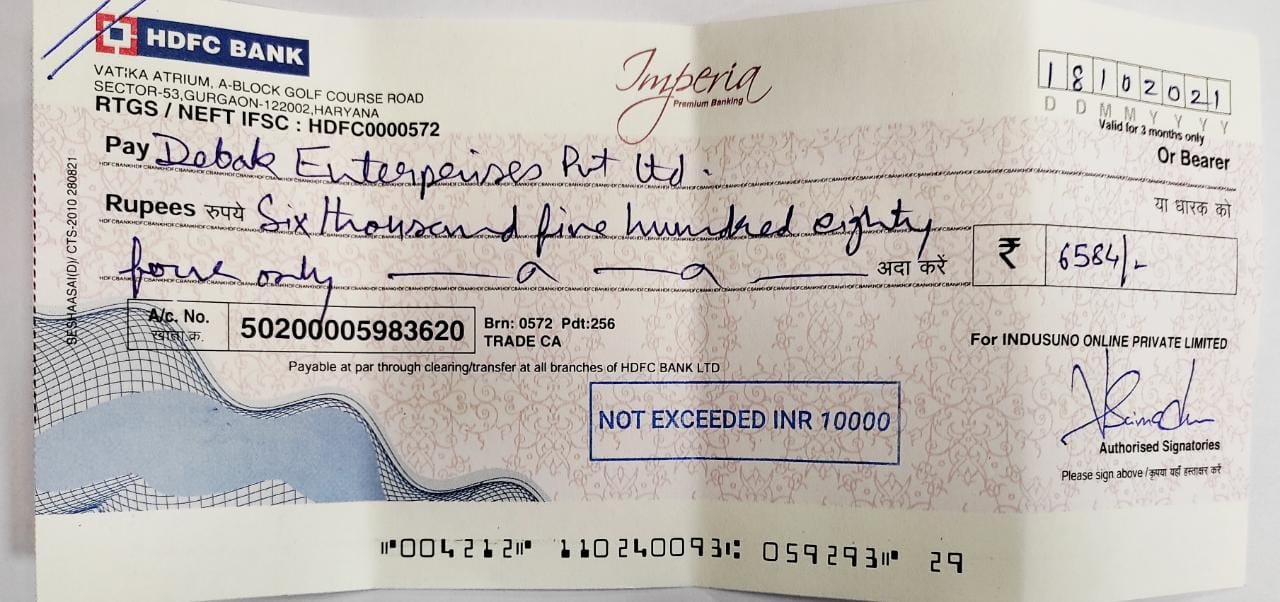 HDFC BANK
VATIKA ATRIUM, A-BLOCK GOLF COURSE ROAD
SECTOR-53,GURGAON-122002,HARYANA
RTGS / NEFT IFSC : HDFC0000572
Imperia
Premium Banking
18102021
D D M M Y Y Y Y
Valid for 3 months only
Pay Debak Enterpenises Pvt Ltd.
Or Bearer
या धारक को
Rupees रुपये Six thousand five hundred eighty
four only अदा करें
₹ 6584/-
A/c. No.
खाता क्र.
50200005983620
Brn: 0572 Pdt:256
TRADE CA
Payable at par through clearing/transfer at all branches of HDFC BANK LTD
NOT EXCEEDED INR 10000
For INDUSUNO ONLINE PRIVATE LIMITED
Authorised Signatories
Please sign above / कृपया यहाँ हस्ताक्षर करें
⑈004212⑈ 110240093⑆ 059293⑈ 29